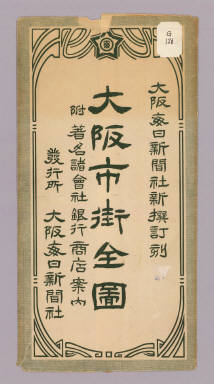 大阪毎日新聞社新撰訂刻
大阪市街全圖
附 著名諸會社銀行商店案內
發行所 大阪每日新聞社
G